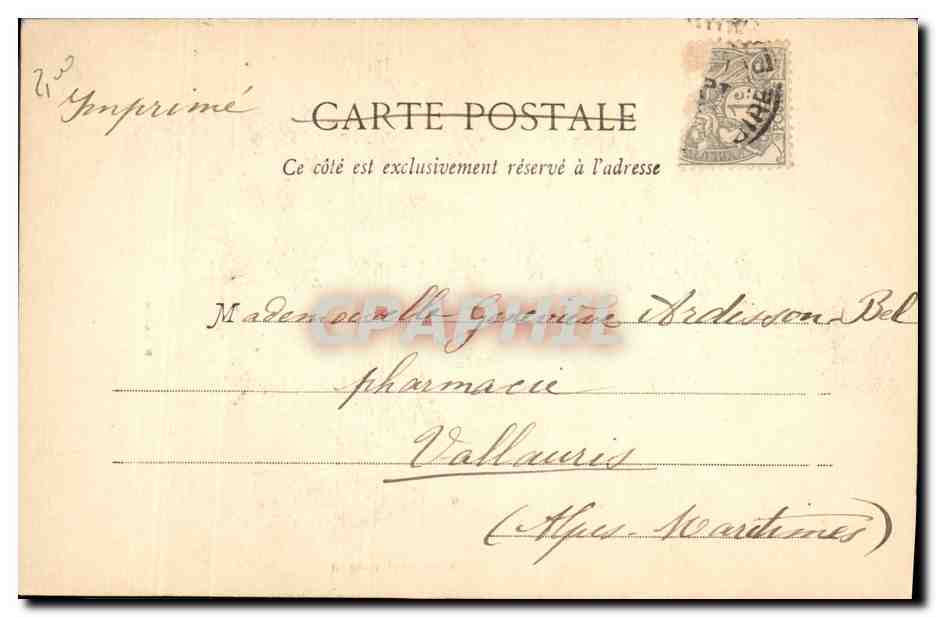 Imprimé
CARTE POSTALE
Ce côté est exclusivement réservé à l'adresse
Mademoiselle Geneviève Ardisson-Bel
CPAPHIL
pharmacie
Vallauris
(Alpes-Maritimes)